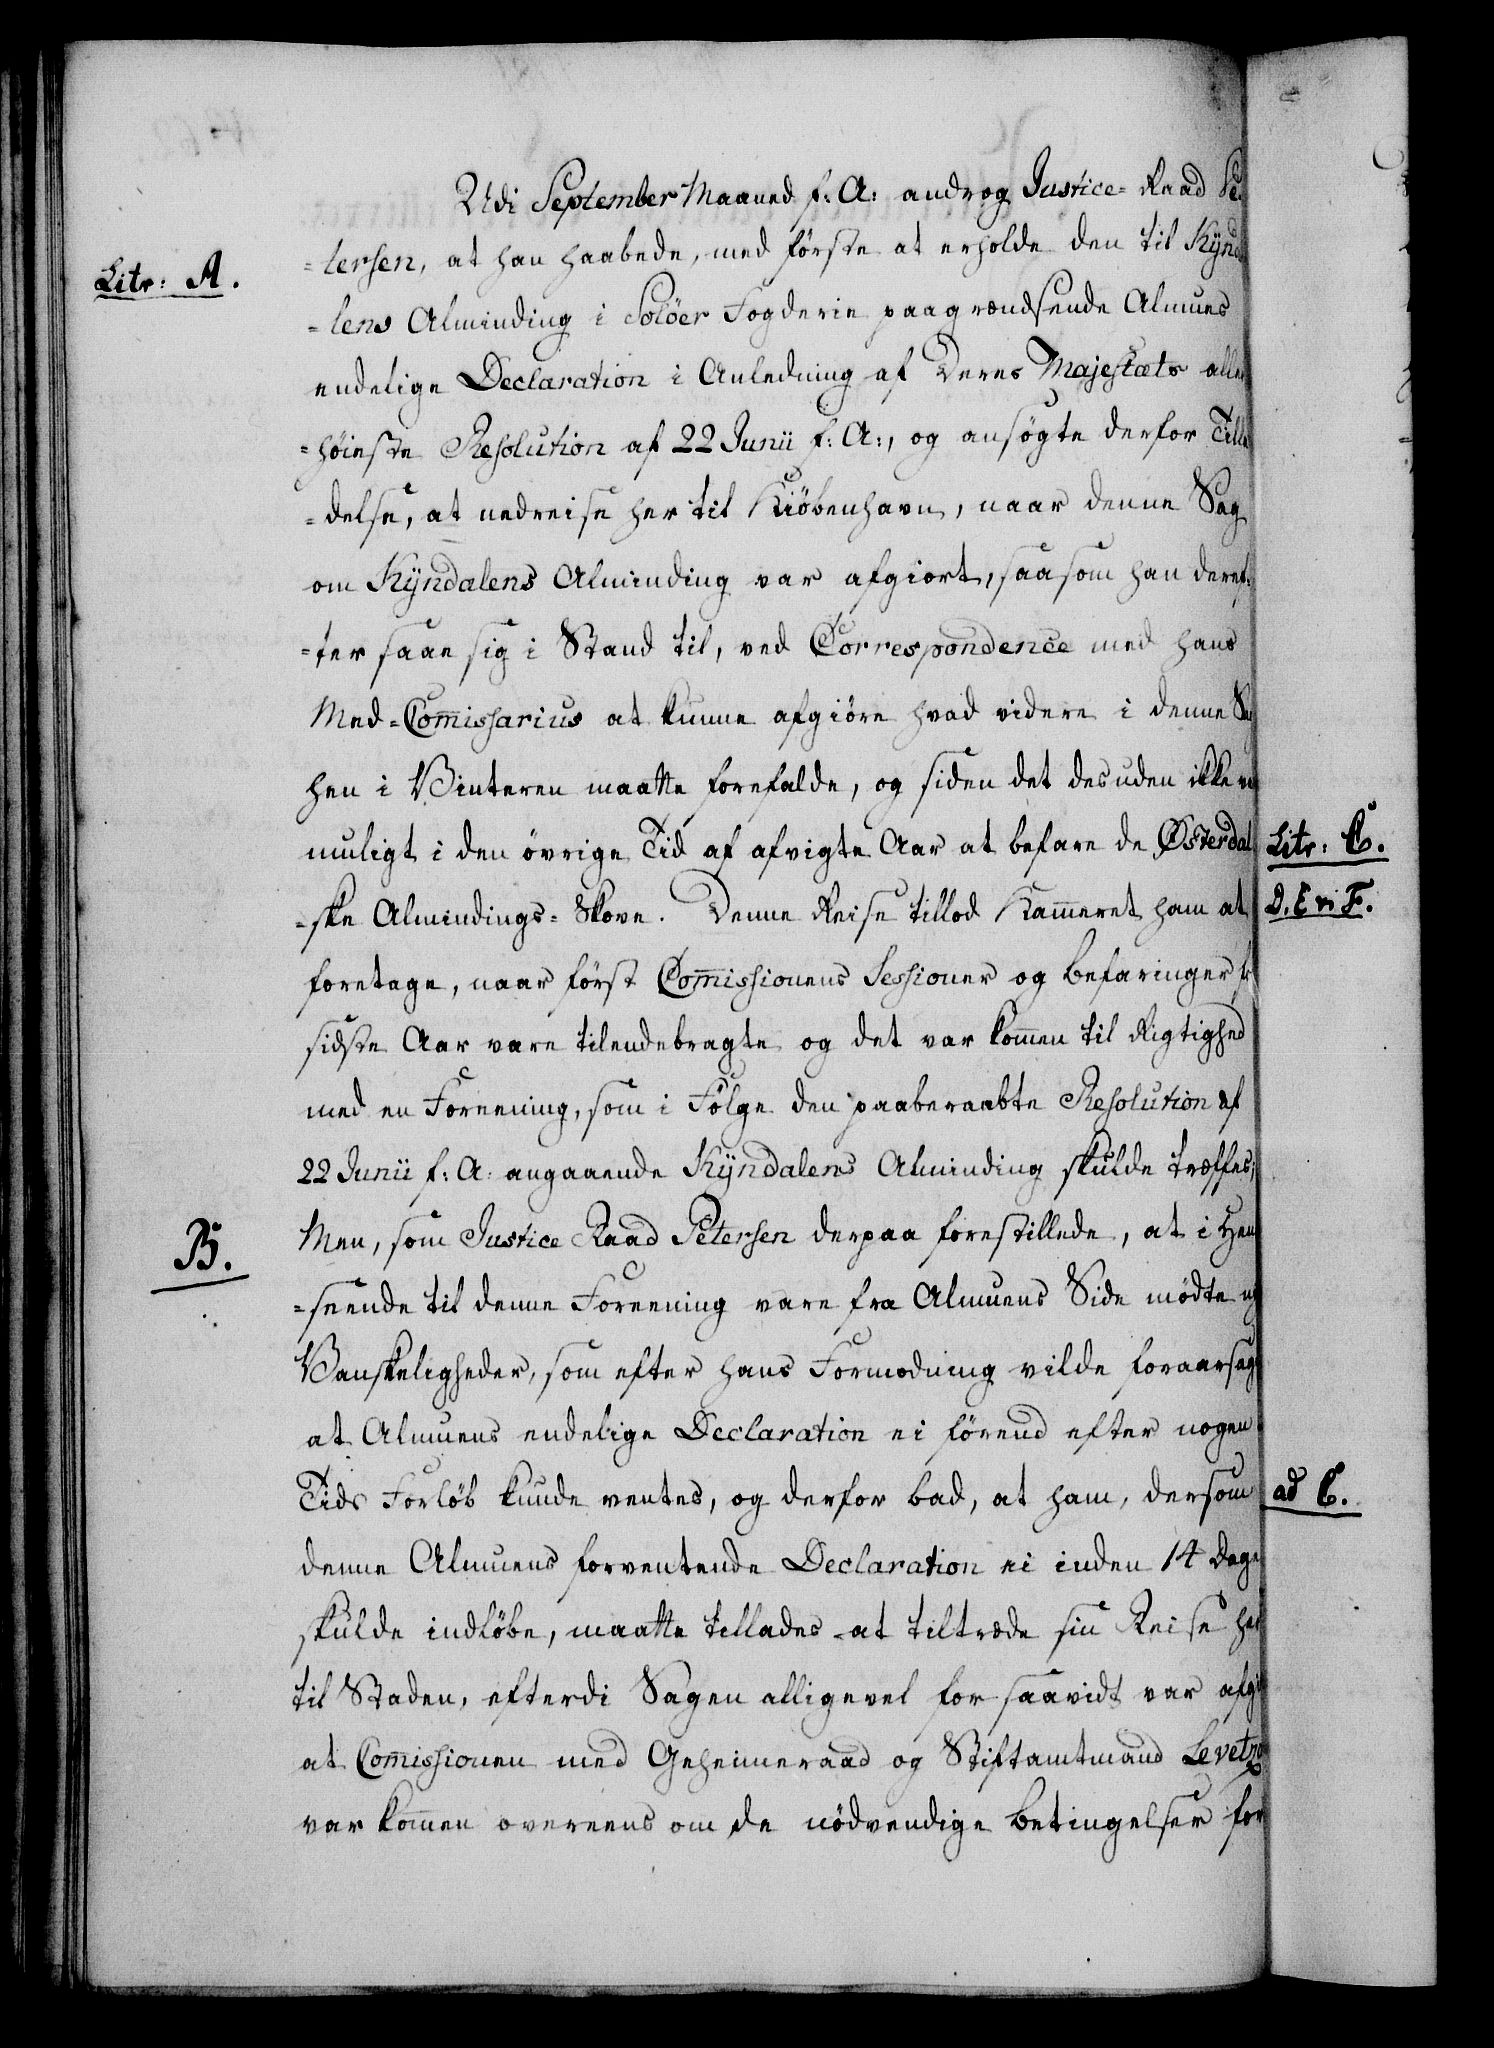 Udi September Maaned f: A: androg Justice-Raad Pe
Litr: A.
=tersen, at han haabede, med første at erholde den til Kÿnd
=lens Alminding i Solöer Fogderie paagrændsende Almues
endelige Declaration i Anledning af Deres Majestæts aller
=høieste Resolution af 22 Junii f: A:, og ansøgte derfor Tilla
=delse, at nedreise her til Kiöbenhavn, naar denne Sag
om Kÿndalens Alminding var afgiort, saasom han deref=
=ter saae sig i Stand til, ved Correspondence med hans
Med=Com̄issarius at kunne afgiöre hvad videre i denne Sag
hen i Vinteren maatte forefalde, og siden det desuden ikke
muligt i den övrige Tid af afvigte Aar at befare de Østerdal
=ske Almindings=Skove. Denne Reise tillod Kam̄eret ham at
foretage, naar först Com̄issionens Sessioner og Befaringer
sidste Aar vare tilendebragte og det var kom̄en til Rigtighed
med en Foreening, som i Fölge den paaberaabte Resolution af
22 Junii f: A: angaaende Kÿndalens Alminding skulde træffes;
B.
Men, som Justice Raad Petersen derpaa forestillede, at i Hen
=seende til denne Foreening vare fra Almuens Side mödte
Vanskeligheder, som efter hans Formodning vilde foraarsag
at Almuens endelige Declaration ei förend efter nogen
Tids Forlöb kunde ventes, og derfor bad, at ham, dersom
denne Almuens forventende Declaration ei inden 14 Dage
skulde indlöbe, maatte tillades at tiltræde sin Reise her
til Staden, efterdi Sagen alligevel for saavidt var afgi
at Com̄issionen med Geheimeraad og Stiftamtmand Levetzo
var kom̄en overeens om de nödvendige Betingelser for
Litr: C.
D. E og F.
ad C.